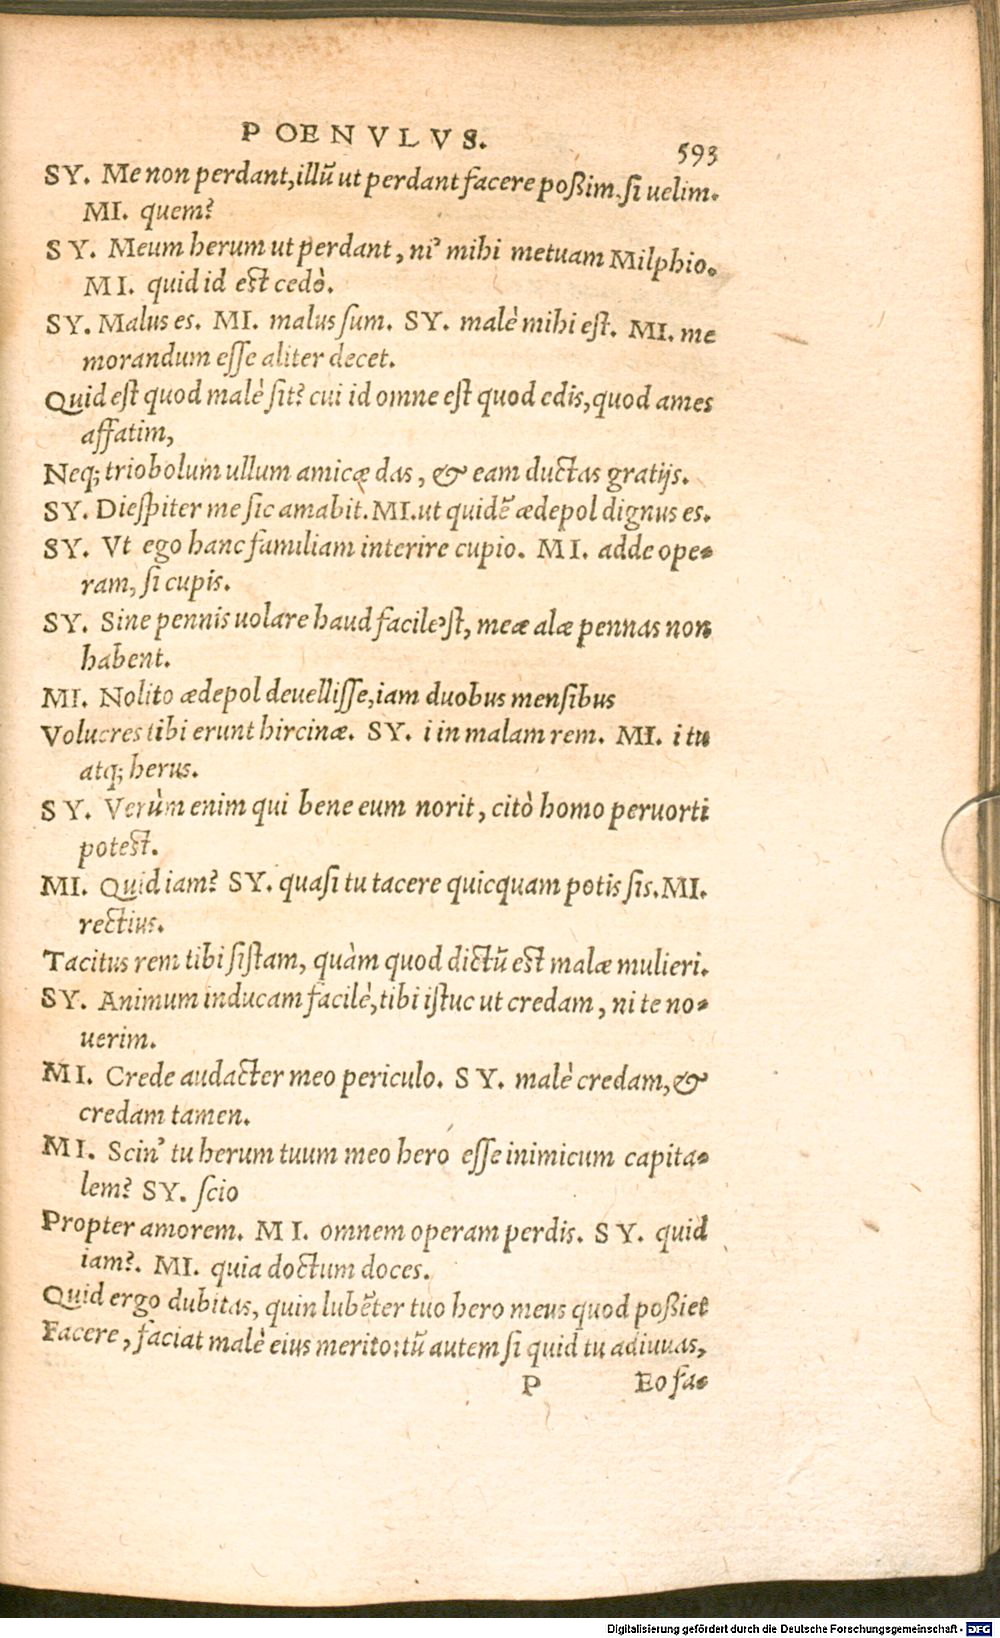 POENVLVS.
593
SY. Me non perdant, illũ ut perdant facere poßim, si uelim.
MI. quem?
SY. Meum herum ut perdant, ni' mihi metuam Milphio.
MI. quid id est cedò.
SY. Malus es. MI. malus sum. SY. malè mihi est. MI. me
morandum esse aliter decet.
Quid est quod malè sit? cui id omne est quod edis, quod ames
affatim,
Neq; triobolum ullum amicæ das, & eam ductas gratijs.
SY. Diespiter me sic amabit. MI. ut quidẽ ædepol dignus es.
SY. Vt ego hanc familiam interire cupio. MI. adde ope-
ram, si cupis.
SY. Sine pennis uolare haud facile'st, meæ alæ pennas non
habent.
MI. Nolito ædepol deuellisse, iam duobus mensibus
Volucres tibi erunt hircinæ. SY. i in malam rem. MI. i tu
atq; herus.
SY. Verùm enim qui bene eum norit, citò homo peruorti
potest.
MI. Quid iam? SY. quasi tu tacere quicquam potis sis. MI.
rectius.
Tacitus rem tibi sistam, quàm quod dictũ est malæ mulieri.
SY. Animum inducam facilè, tibi istuc ut credam, ni te no-
uerim.
MI. Crede audacter meo periculo. SY. malè credam, &
credam tamen.
MI. Scin' tu herum tuum meo hero esse inimicum capita-
lem? SY. scio
Propter amorem. MI. omnem operam perdis. SY. quid
iam?. MI. quia doctum doces.
Quid ergo dubitas, quin lubẽter tuo hero meus quod poßiet
Facere, faciat malè eius merito: tũ autem si quid tu adiuuas,
P Eo fa-
Digitalisierung gefördert durch die Deutsche Forschungsgemeinschaft - DFG